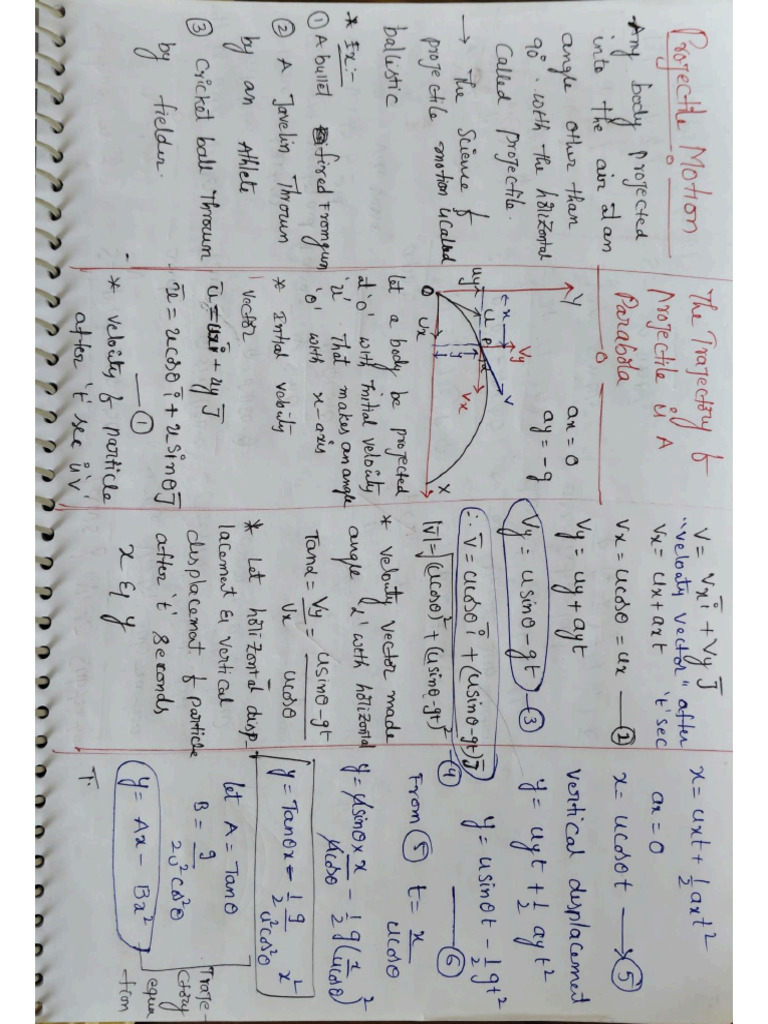 Projectile Motion
Any body projected
into the air at an
angle other than
90°. with the horizontal
Called projectile.
→ The Science of
projectile motion is called
ballistic
* Ex:-
① A bullet fired from gun
② A Javelin Thrown
by an Athlete
③ Cricket ball Thrown
by fielder.
The Trajectory of
projectile is A
Parabola
Y
ax = 0
ay = -g
← x →
Vy
V
uy
u
P
α
Vx
y
θ
O
ux
X
let a body be projected
at 'o' with initial velocity
'u'. That makes an angle
'θ' with x-axis
* Initial velocity
vector
ū = uxī + uyJ̄
ū = ucosθī + usinθJ̄
— ①
* velocity of particle
after 't' sec is 'v'
V = Vxī + VyJ̄
"velocity vector" after 't' sec
Vx = ux + axt
Vx = ucosθ = ux — ②
Vy = uy + ayt
Vy = usinθ - gt — ③
∴ V̄ = ucosθī + (usinθ-gt)J̄
|V̄| = √(ucosθ)² + (usinθ-gt)² — ④
* velocity vector made
angle 'α' with horizontal
Tanα = Vy/Vx = usinθ-gt/ucosθ
* Let horizontal disp-
lacement & vertical
displacement of particle
after 't' seconds
x & y
x = uxt + 1/2 axt²
ax = 0
x = ucosθt → ⑤
vertical displacement
y = uyt + 1/2 ayt²
y = usinθt - 1/2 gt²
— ⑥
From ⑤ t = x/ucosθ
y = usinθ x x/ucosθ - 1/2 g(x/ucosθ)²
y = Tanθx - 1/2 g/u²cos²θ x²
let A = Tanθ
B = g/2u²cos²θ
y = Ax - Bx²
Traje-
ctory
equa
tion
T.